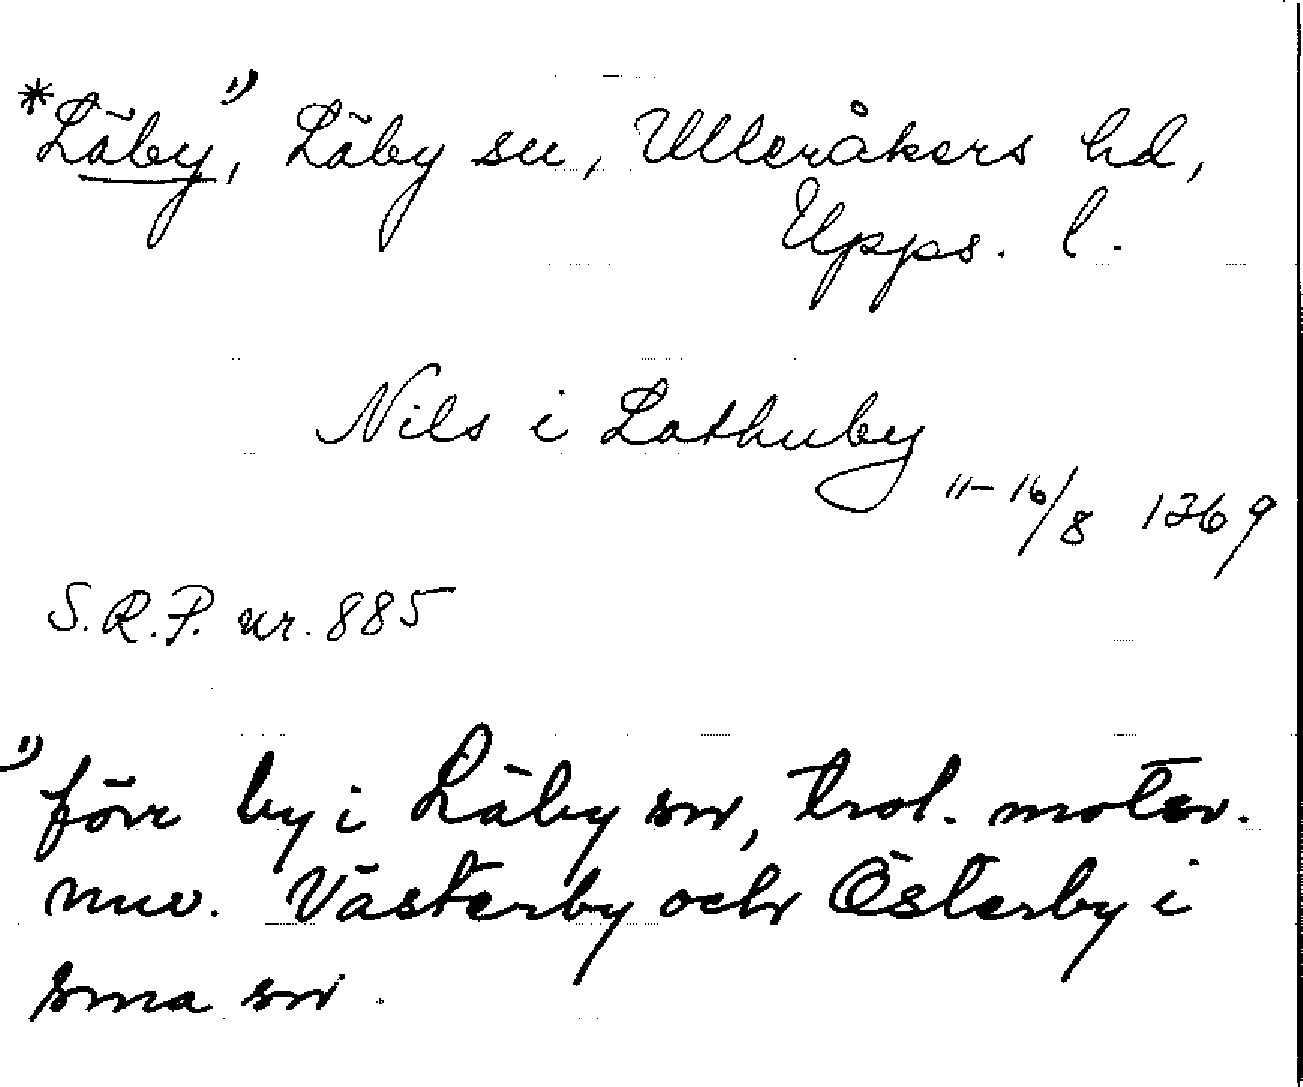 *Läby,¹⁾ Läby sn, Ulleråkers hd,
Upps. l.
Nils i Lathuby
11-16/8 1369
S.R.P. nr. 885
¹⁾ förr by i Läby sn, trol. motsv.
nuv. Västerby och Österby i
sma sn.